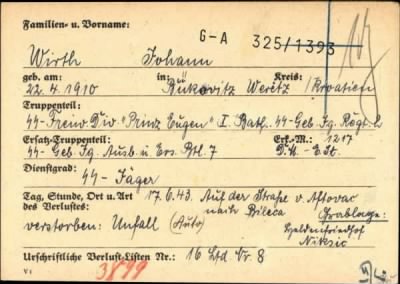 Familien- u. Vorname:
G-A 325/1393
Wirth Johann
geb. am: in: Kreis:
22.4.1910 Bukovitz Weretz /Kroatien
Truppenteil:
SS-Freiw. Div. "Prinz Eugen" I. Batl. SS-Geb. Jg. Regt. 2
Ersatz-Truppenteil: Erk.-M.: 1217
SS-Geb. Jg. Ausb. u. Ers. Btl. 7
Dienstgrad:
SS-Jäger
Tag, Stunde, Ort u. Art des Verlustes: 17.6.43. Auf der Straße v. Aftovac
nach Bileca Grablage:
verstorben: Unfall (Auto) Heldenfriedhof
Niksic
Urschriftliche Verlust-Listen Nr.: 16 Lfd. Nr. 8
3899
V 1